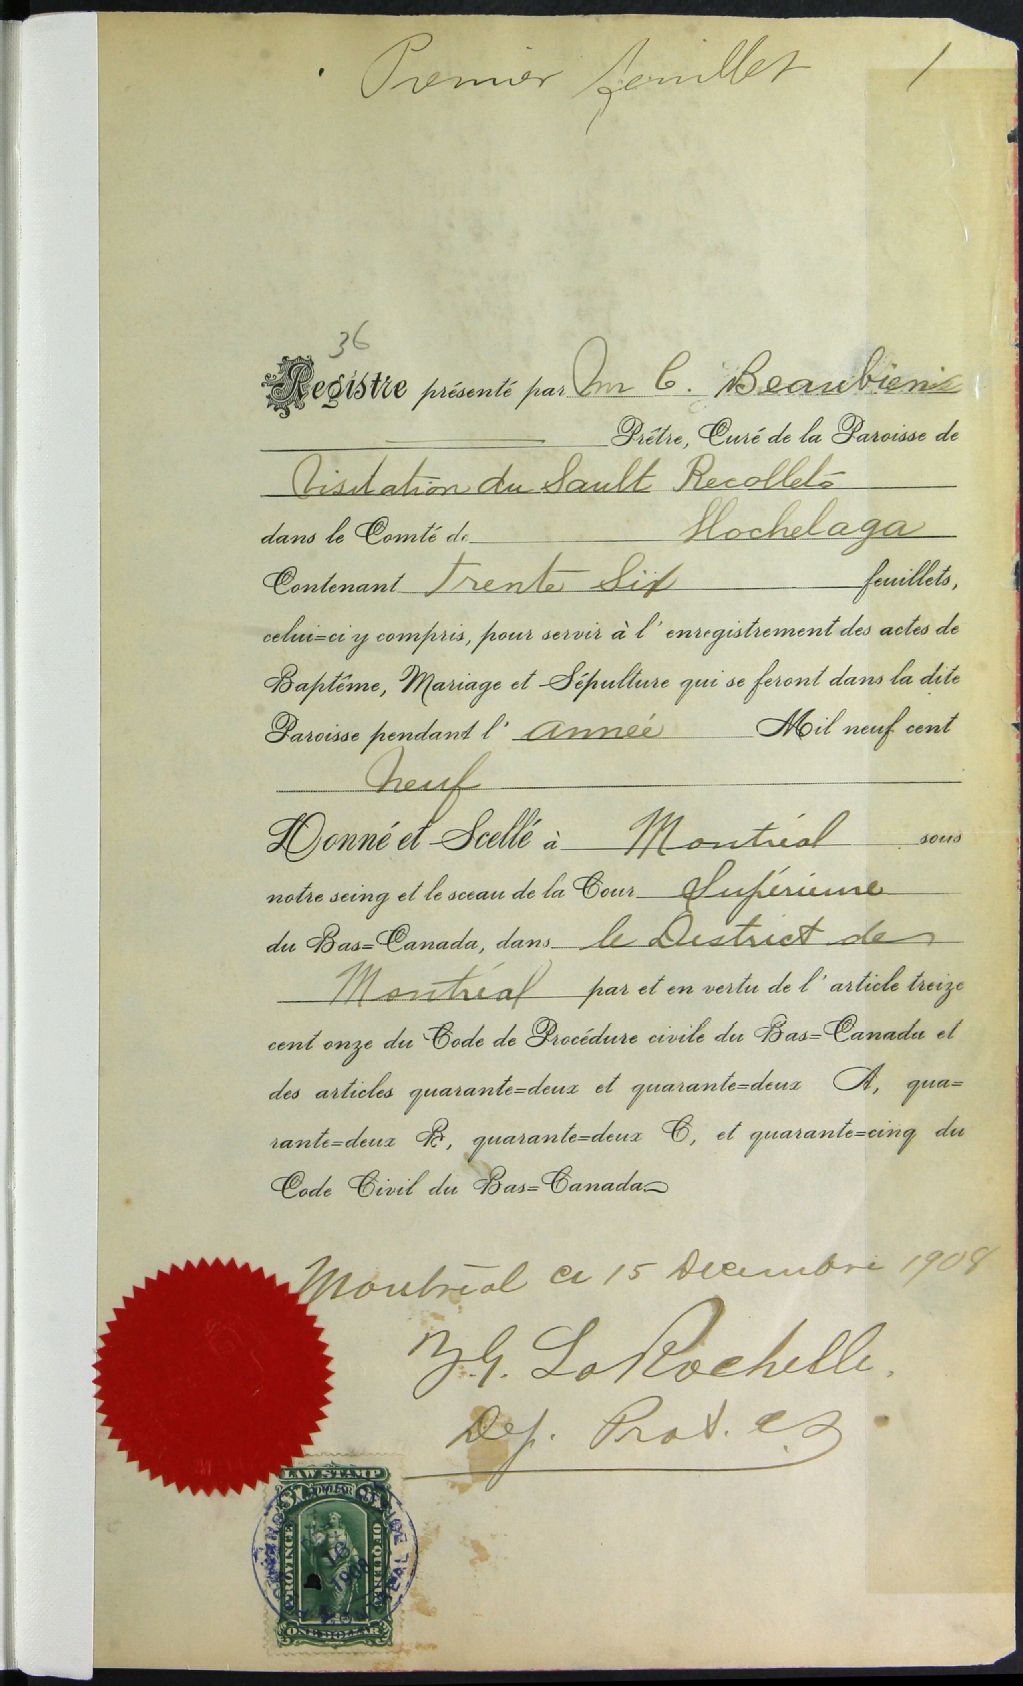 Premier feuillet 1
36
Registre présenté par Mr C. Beaubien
Prêtre, Curé de la Paroisse de
Visitation du Sault Recollets
dans le Comté de Hochelaga
Contenant trente six feuillets,
celui=ci y compris, pour servir à l'enregistrement des actes de
Baptême, Mariage et Sépulture qui se feront dans la dite
Paroisse pendant l'année Mil neuf cent
neuf
Donné et Scellé à Montréal sous
notre seing et le sceau de la Cour Supérieure
du Bas=Canada, dans le District de
Montréal par et en vertu de l'article treize
cent onze du Code de Procédure civile du Bas=Canada et
des articles quarante=deux et quarante=deux A, qua=
rante=deux B, quarante=deux C, et quarante=cinq du
Code Civil du Bas=Canada
Montréal ce 15 Decembre 1908
G. LaRochelle.
Dep. Prot. C.S
LAW STAMP
PROVINCE
OF QUEBEC
ONE DOLLAR